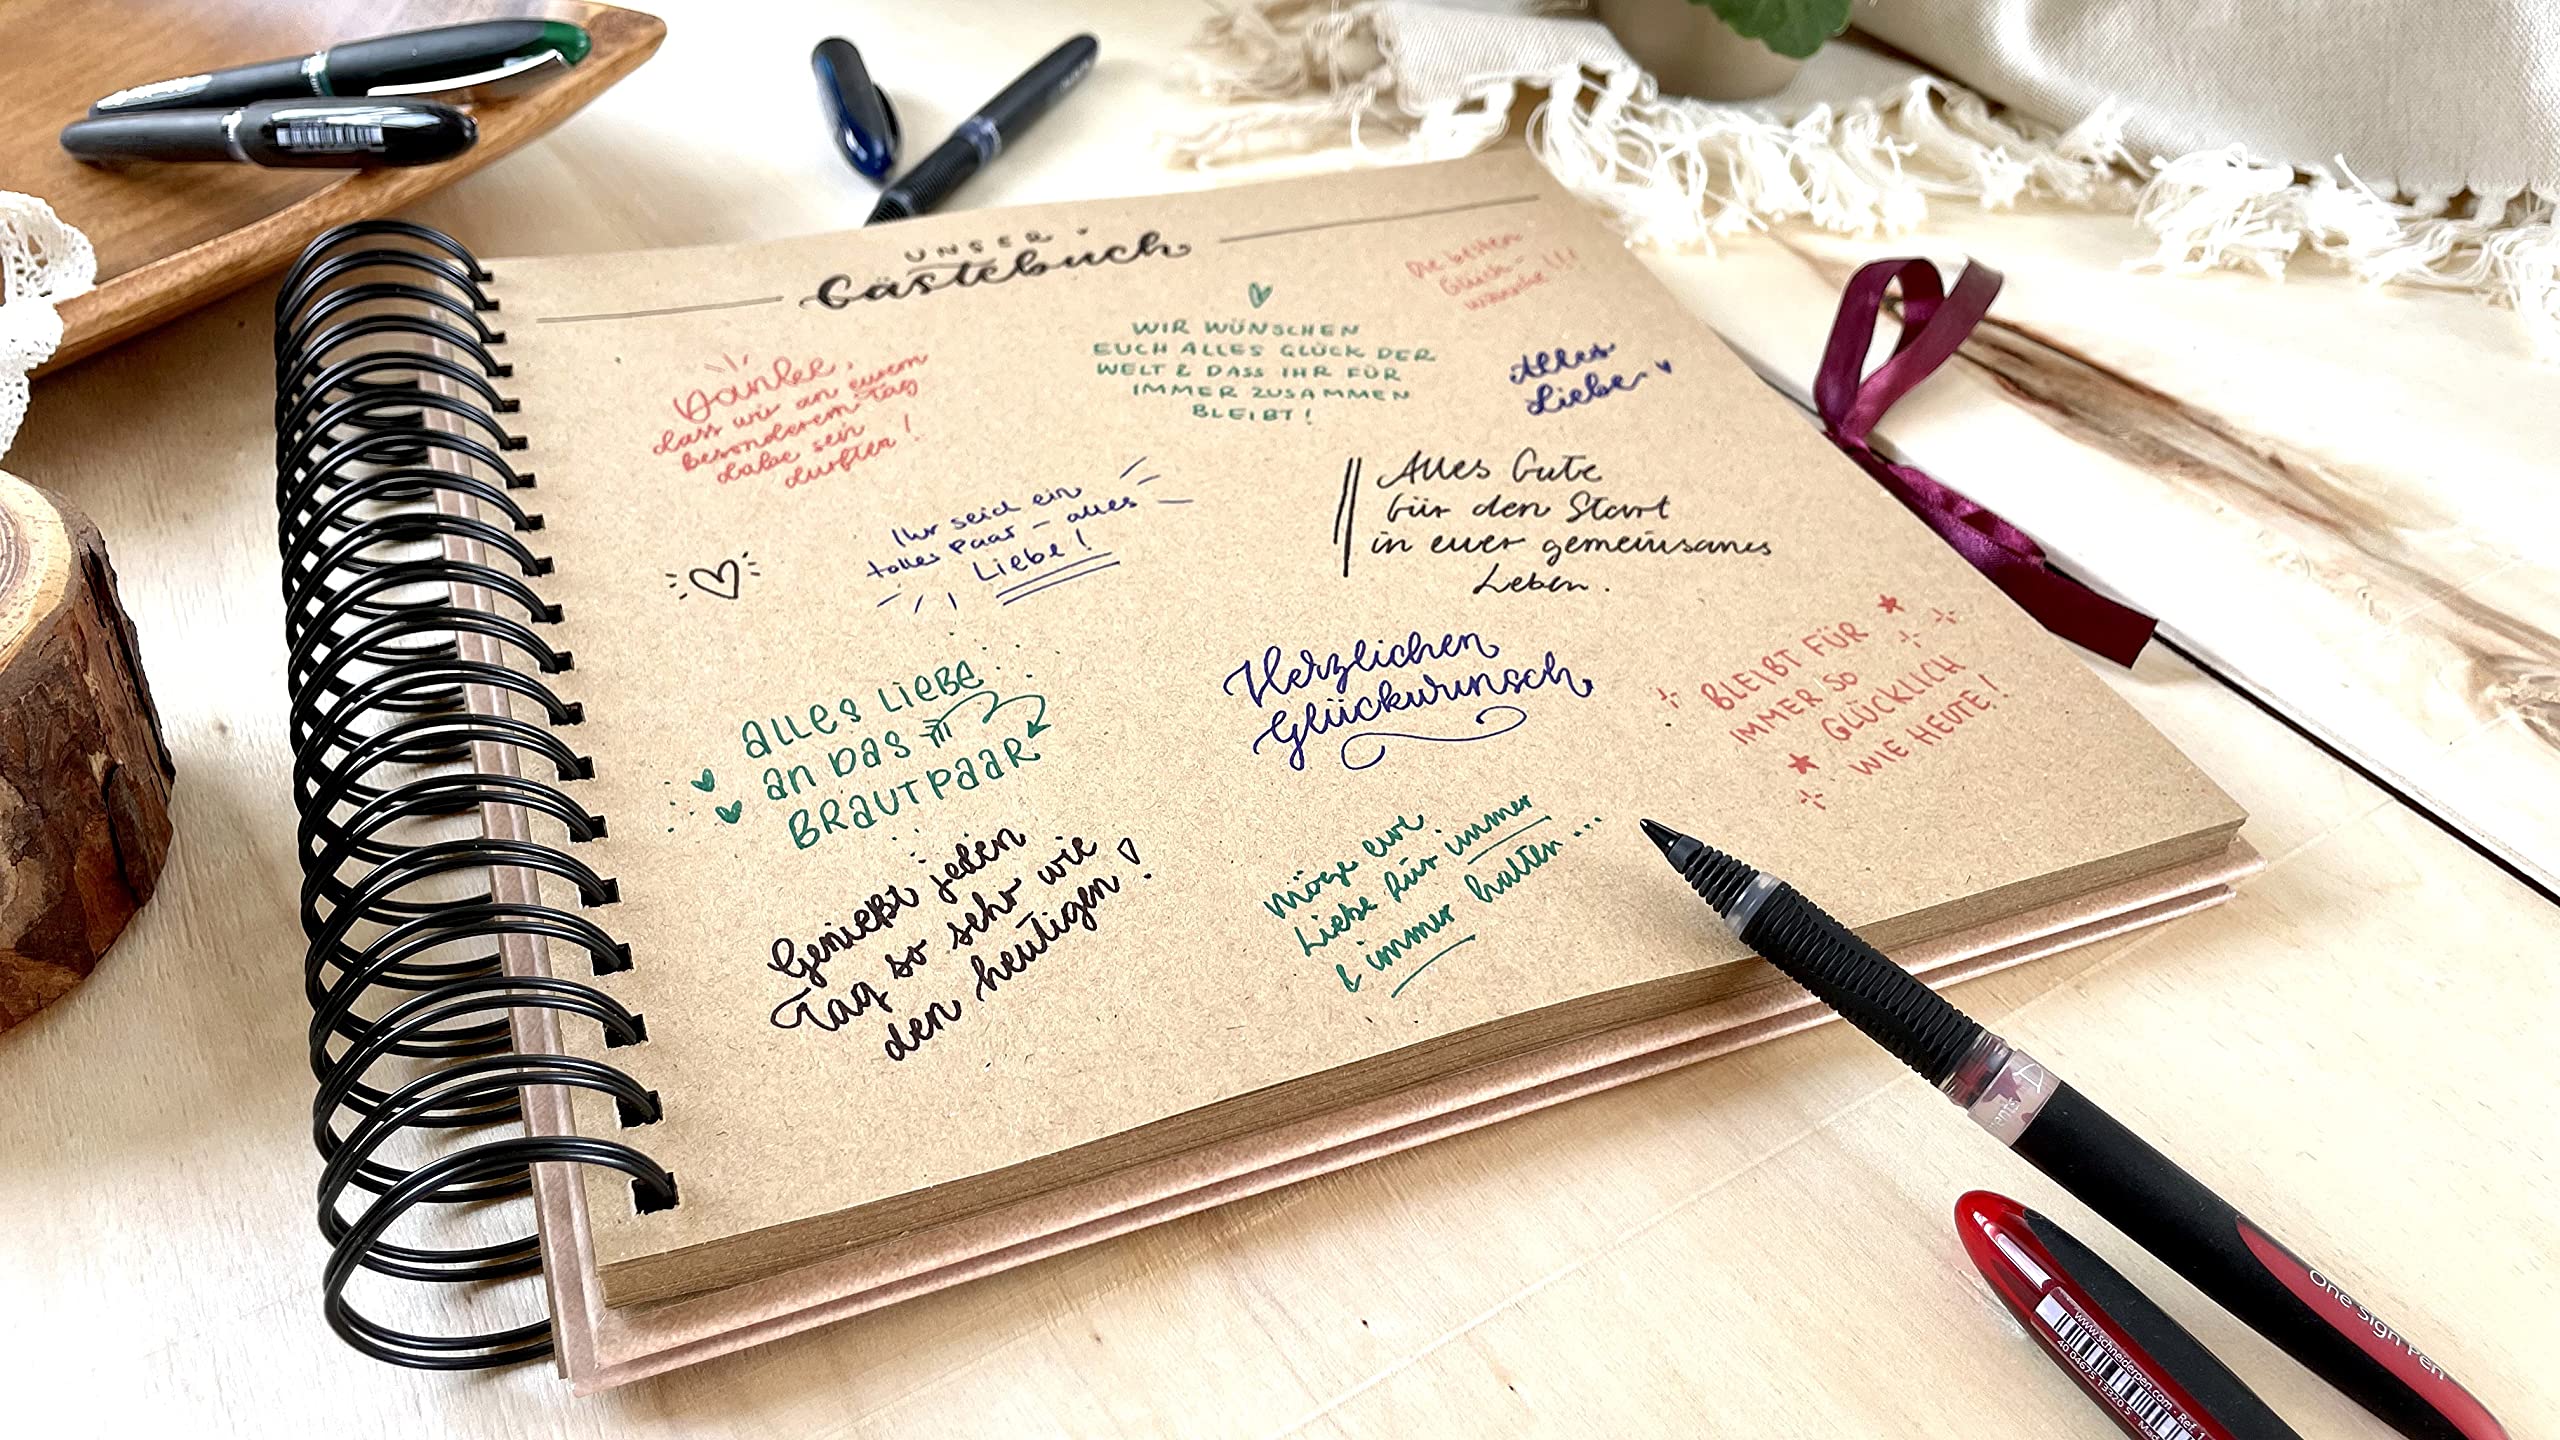 UNSER
Gästebuch
Die besten
Glück-
wünsche!!!
WIR WÜNSCHEN
EUCH ALLES GLÜCK DER
WELT & DASS IHR FÜR
IMMER ZUSAMMEN
BLEIBT!
Danke,
dass wir an eurem
besonderem Tag
dabei sein
durften!
Alles
Liebe
Ihr seid ein
tolles Paar - alles
Liebe!
Alles Gute
für den Start
in euer gemeinsames
Leben.
ALLES LIEBE
AN DAS
BRAUTPAAR
Herzlichen
Glückwunsch
BLEIBT FÜR
IMMER SO
GLÜCKLICH
WIE HEUTE!
Genießt jeden
Tag so sehr wie
den heutigen!
Möge eure
Liebe für immer
& immer halten...
One Sign Pen
www.schneiderpen.com · Ref. 1
40 04675 13320 5